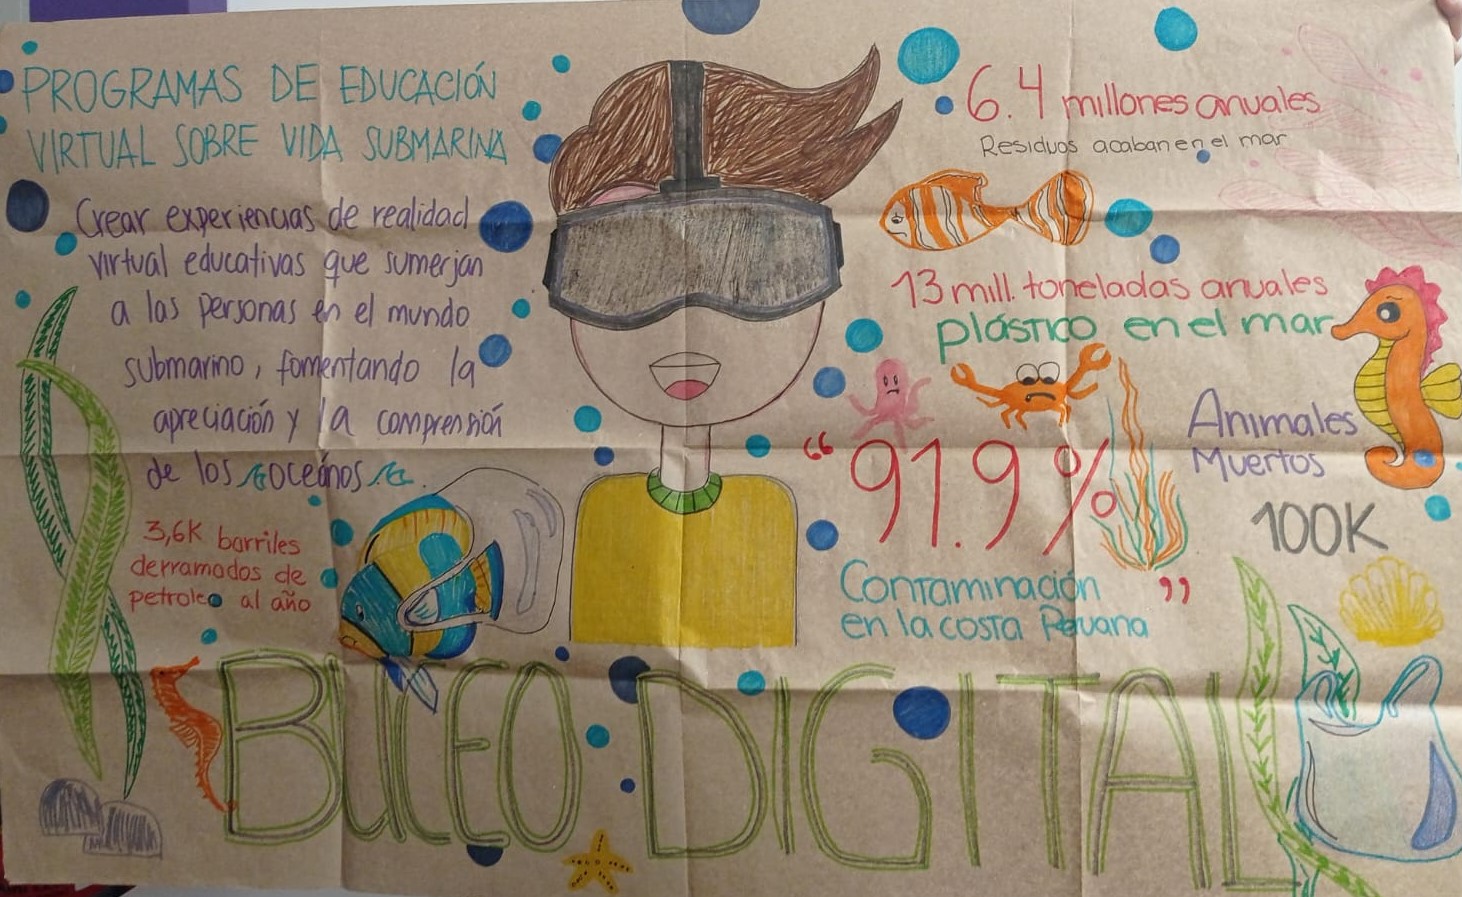 PROGRAMAS DE EDUCACIÓN
VIRTUAL SOBRE VIDA SUBMARINA
Crear experiencias de realidad
virtual educativas que sumerjan
a las personas en el mundo
submarino, fomentando la
apreciación y la comprensión
de los océanos.
3,6K barriles
derramados de
petroleo al año
6.4 millones anuales
Residuos acaban en el mar
13 mill. toneladas anuales
plástico en el mar
"91.9%"
Contaminación
en la costa Peruana
Animales
Muertos
100K
BUCEO DIGITAL